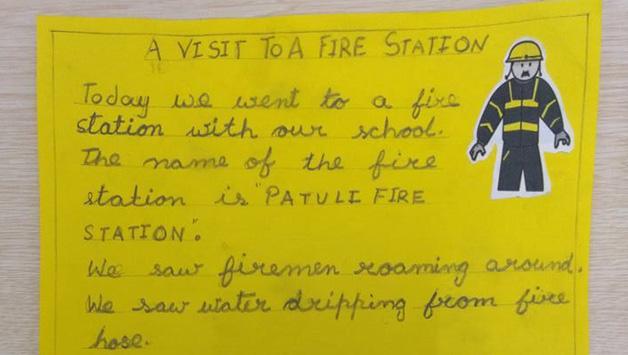 A VISIT TO A FIRE STATION
Today we went to a fire
station with our school.
The name of the fire
station is "PATULI FIRE
STATION".
We saw firemen roaming around.
We saw water dripping from fire
hose.